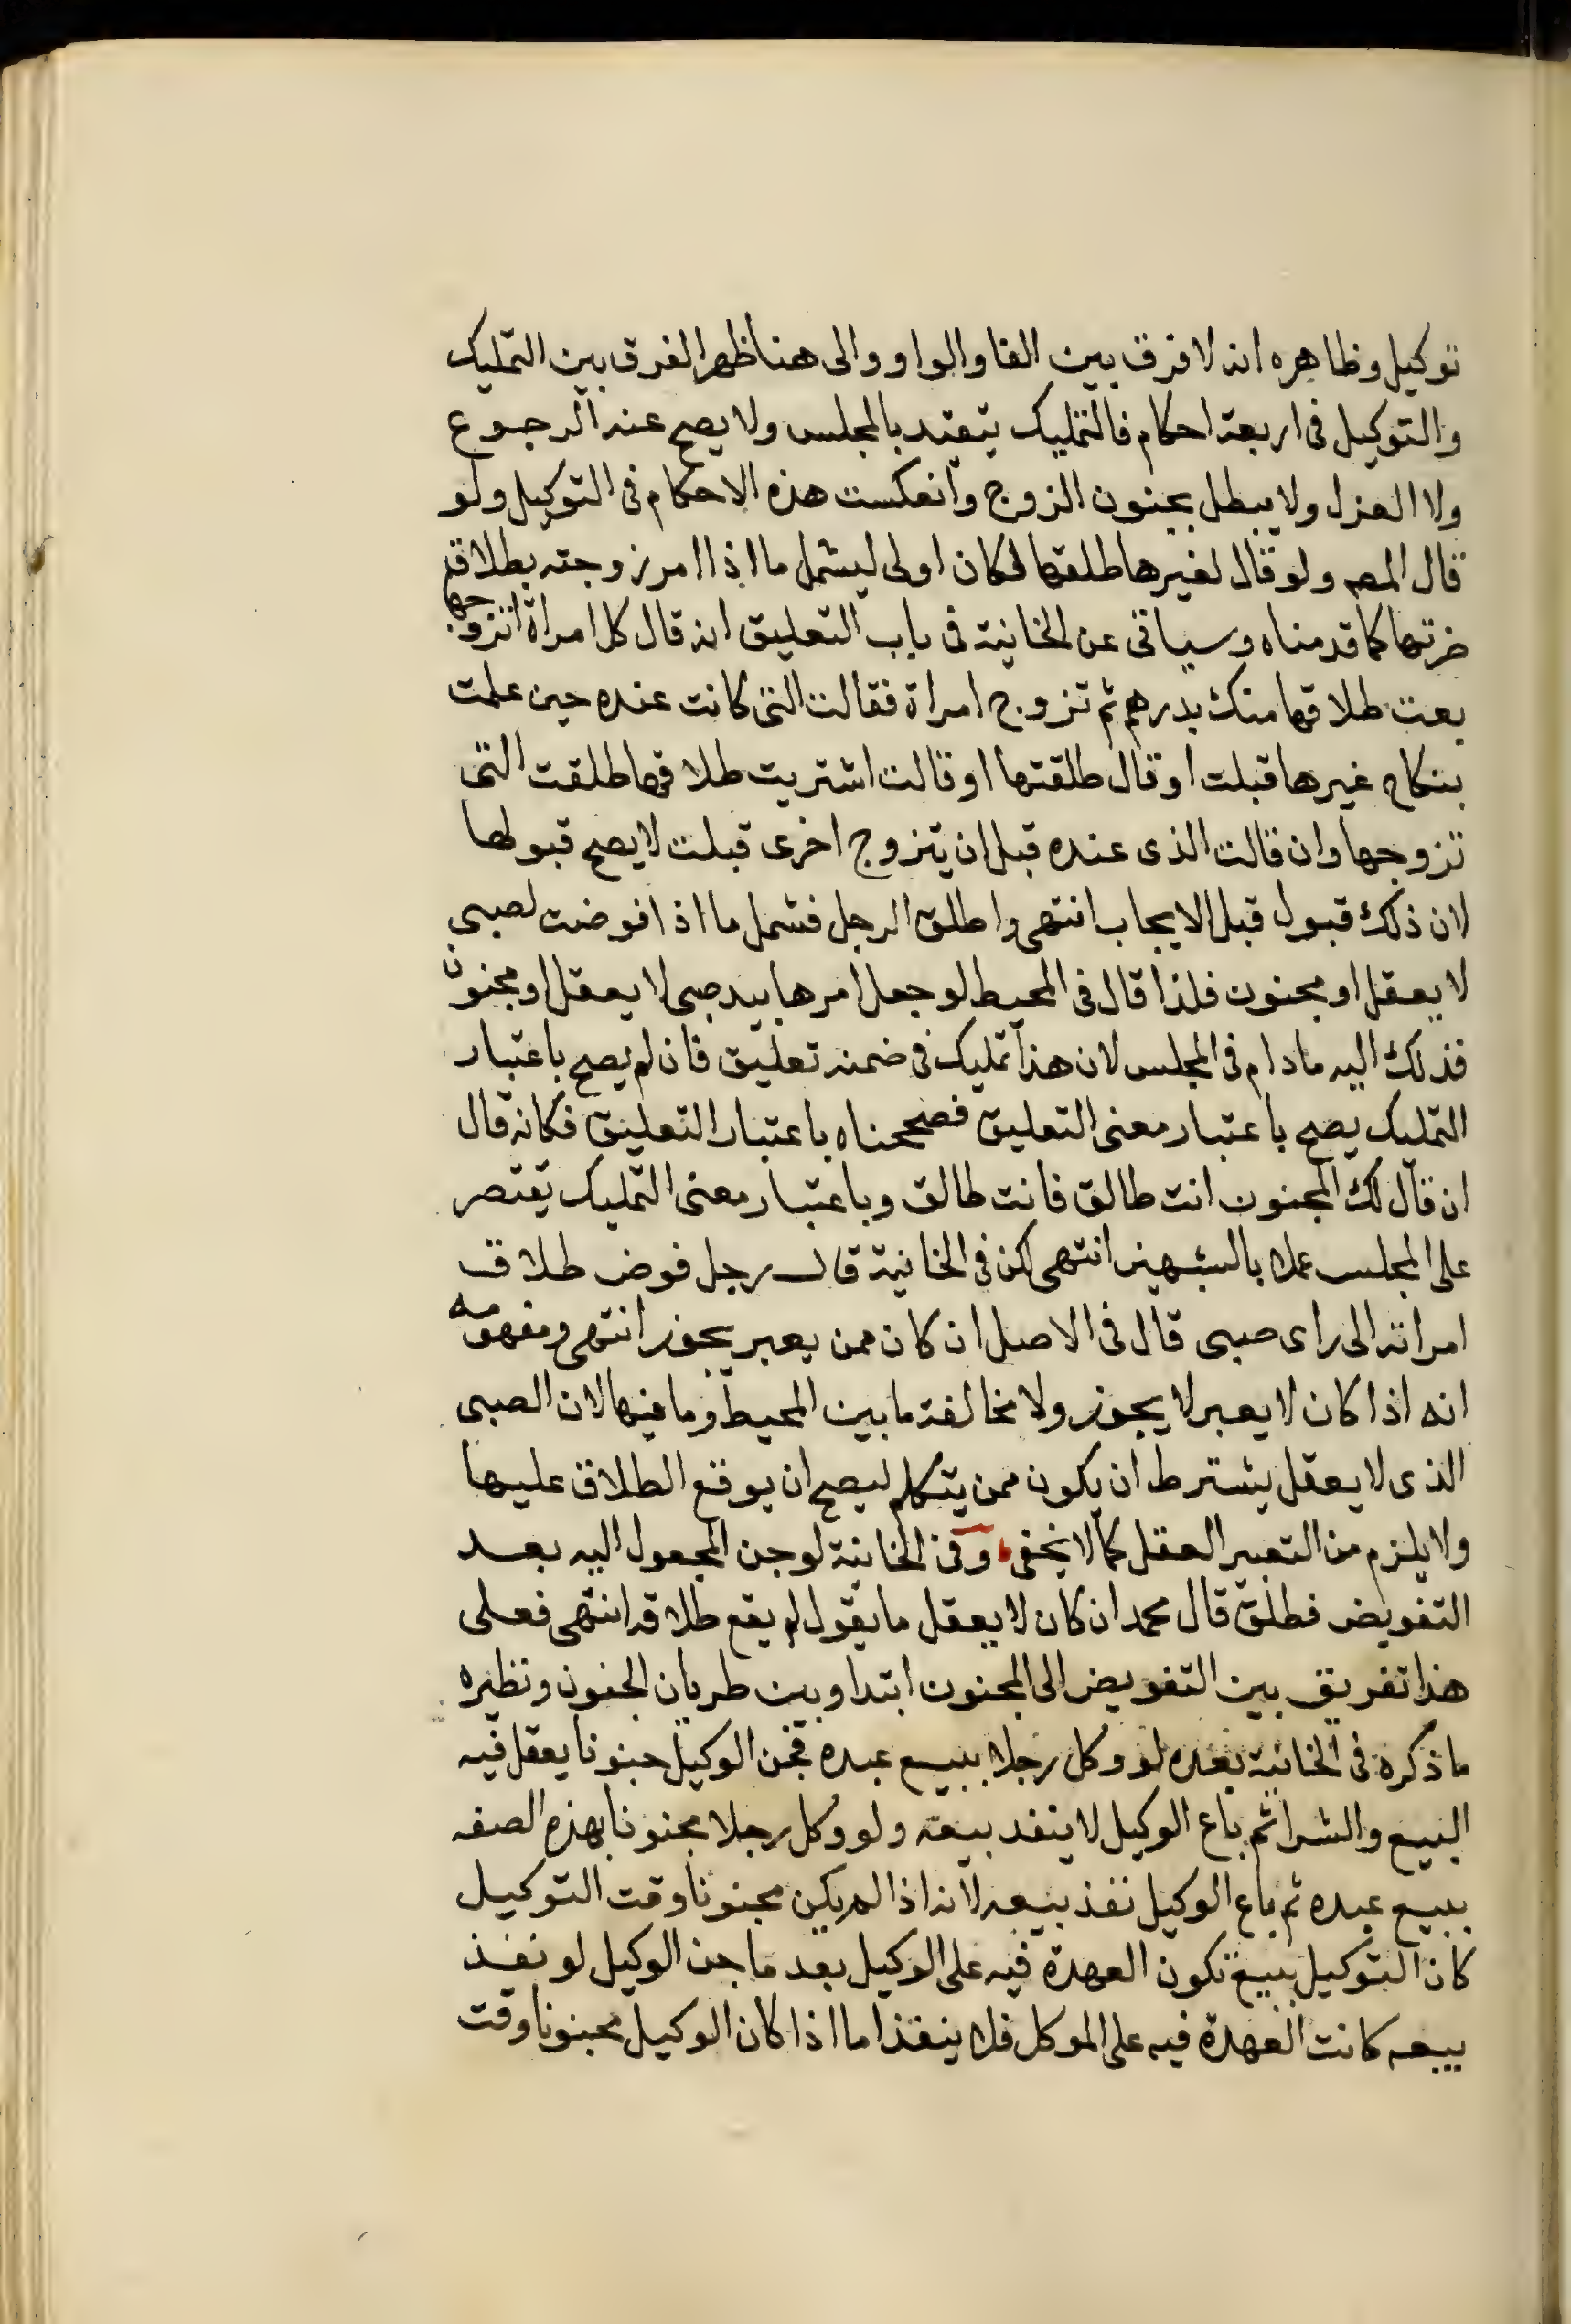 توكيل وظاهره انه لا فرق بين الفا والواو والى هنا ظهر الفرق بين التمليك
والتوكيل فى اربعة احكام فالتمليك يتقيد بالمجلس ولا يصح عنه الرجوع
ولا العزل ولا يبطل بجنون الزوج وانعكست هذه الاحكام فى التوكيل ولو
قال المصـ ولو قال لغيرها طلقها لكان اولى ليشمل ما اذا امر زوجته بطلاق
ضرتها كما قدمناه وسياتى عن الخانية فى باب التعليق انه قال كل امراة اتزوجها
بعت طلاقها منك بدرهم ثم تزوج امراة فقالت التى كانت عنده حين علمت
بنكاح غيرها قبلت او قال طلقتها او قالت اشتريت طلاقها طلقت التى
تزوجها وان قالت الذى عنده قبل ان يتزوج اخرى قبلت لا يصح قبولها
لان ذلك قبول قبل الايجاب انتهى واطلق الرجل فشمل ما اذا فوضت لصبى
لا يعقل او مجنون فلذا قال فى المحيط لو جعل امرها بيد صبى لا يعقل او مجنون
فذلك اليه مادام فى المجلس لان هذا تمليك فى ضمنه تعليق فان لم يصح باعتبار
التمليك يصح باعتبار معنى التعليق فصححناه باعتبار التعليق فكانه قال
ان قال لك المجنون انت طالق فانت طالق وباعتبار معنى التمليك يقتصر
على المجلس عملا بالشبهين انتهى لكن فى الخانية قال رجل فوض طلاق
امراته الى راى صبى قال فى الاصل ان كان ممن يعبر يجوز انتهى ومفهومه
انه اذا كان لا يعبر لا يجوز ولا مخالفة ما بين المحيط وما فيها لان الصبى
الذى لا يعقل يشترط ان يكون ممن يتكلم ليصح ان يوقع الطلاق عليها
ولا يلزم من التعبير العقل كما لا يخفى وفى الخانية لو جن المجعول اليه بعد
التفويض فطلق قال محمد ان كان لا يعقل ما يقول لم يقع طلاقه انتهى فعلى
هذا تفريق بين التفويض الى المجنون ابتدا وبين طريان الجنون ونظيره
ما ذكره فى الخانية بعده لو وكل رجلا ببيع عبده فجن الوكيل جنونا يعقل فيه
البيع والشرا ثم باع الوكيل لا ينفد بيعه ولو وكل رجلا مجنونا بهذه الصفه
ببيع عبده ثم باع الوكيل نفذ بيعه لانه اذا لم يكن مجنونا وقت التوكيل
كان التوكيل ببيع تكون العهدة فيه على الوكيل بعد ما جن الوكيل لو نفذ
بيعه كانت العهدة فيه على الموكل فلا ينفذ اما اذا كان الوكيل مجنونا وقت